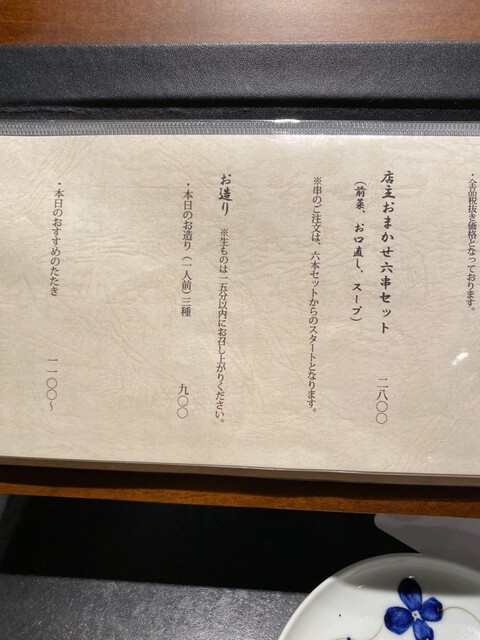 ・全品税抜き価格となっております。
店主おまかせ六串セット 二八〇〇
（前菜、お口直し、スープ）
※串のご注文は、六本セットからのスタートとなります。
お造り ※生ものは一五分以内にお召し上がりください。
・本日のお造り（一人前）三種 九〇〇
・本日のおすすめのたたき 一一〇〇〜